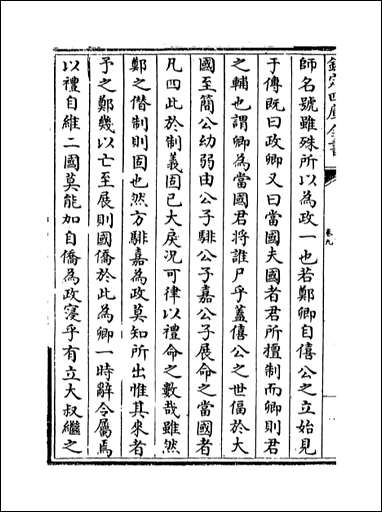 欽定四庫全書
卷九
師名號雖殊所以為政一也若鄭卿自僖公之立始見
于傳既曰政卿又曰當國夫國者君所擅制而卿則君
之輔也謂卿為當國君將誰尸乎蓋僖公之世偪於大
國至簡公幼弱由公子騑公子嘉公子展命之當國者
凡四此於制義固已大戾況可律以禮命之數哉雖然
鄭之僭制則固也然方騑嘉為政莫知所出惟其來者
予之鄭幾以亡至展則國僑於此為卿一時辭令屬焉
以禮自維二國莫能加自僑為政寖乎有立大叔繼之